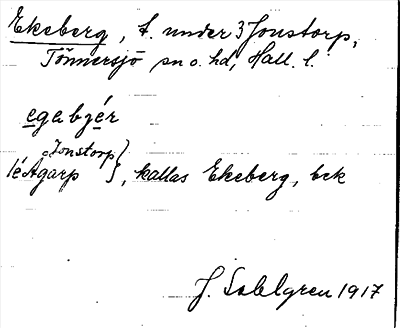 Ekeberg, t. under 3 Jonstorp,
Tönnersjö sn o. hd, Hall. l.
egabjér
Jonstorp
Ågarp }, kallas Ekeberg, bek
J. Sahlgren 1917